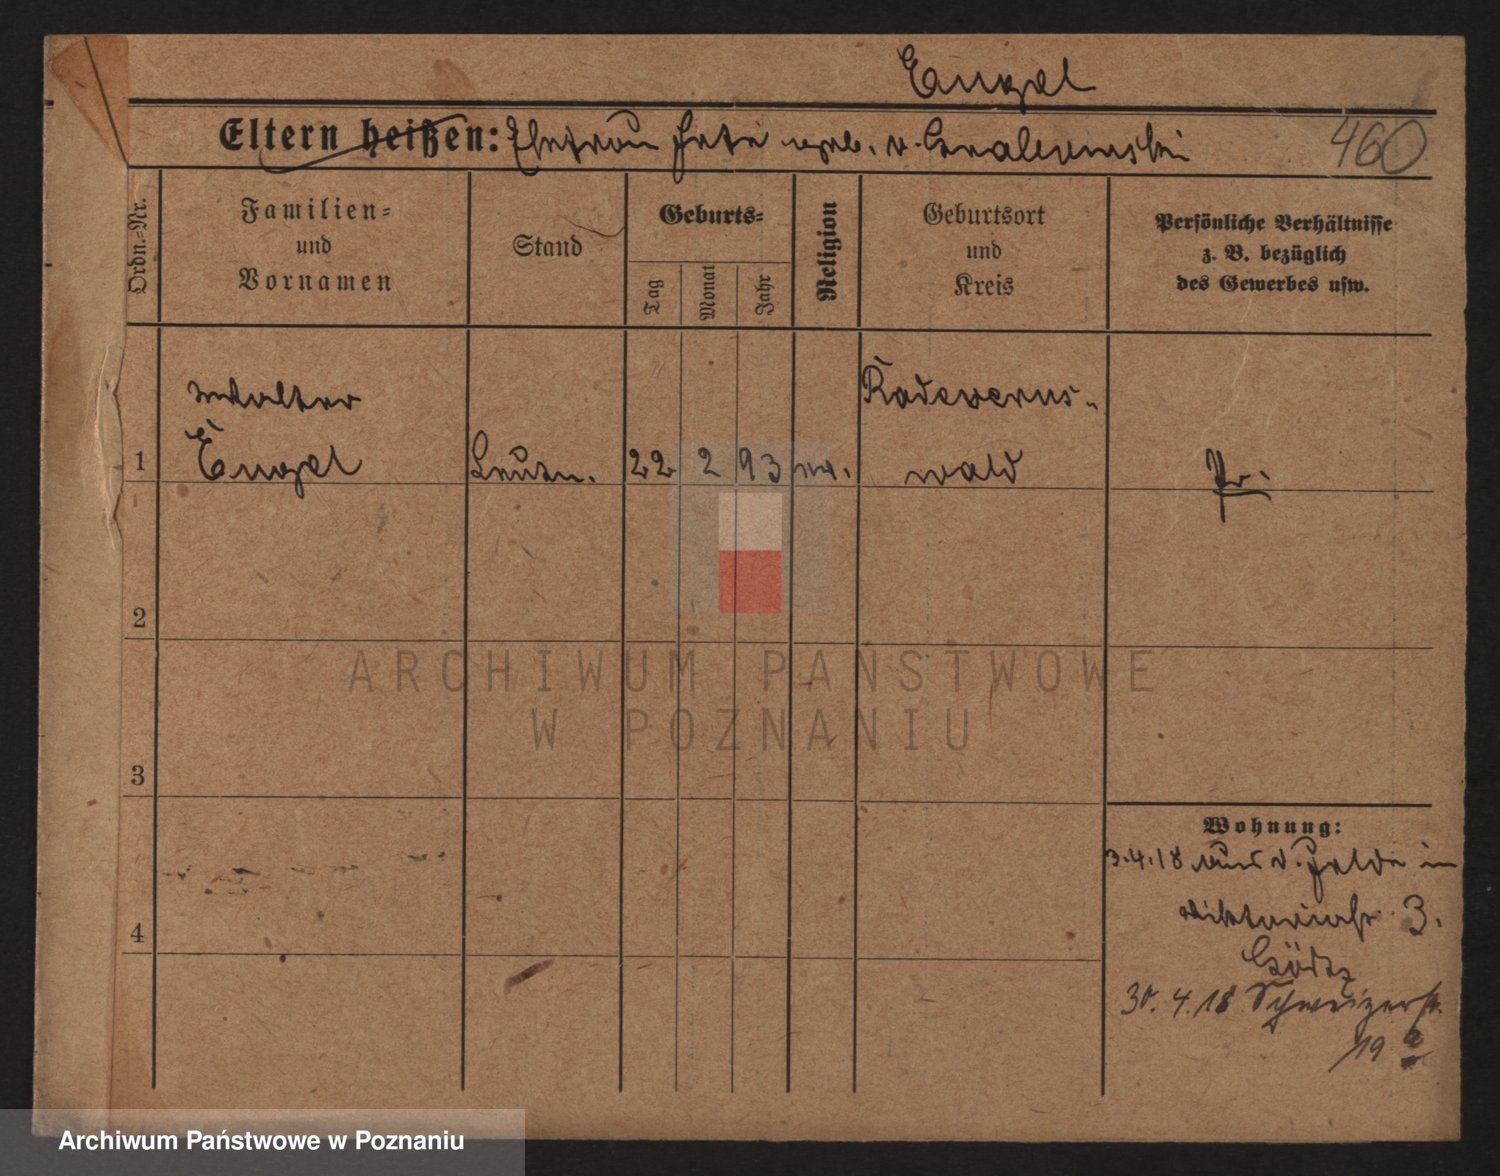 Engel
Eltern heißen: Ehefrau geb. v.
460
Ordn.-Nr.
Familien-
und
Vornamen
Stand
Geburts-
Tag
Monat
Jahr
Religion
Geburtsort
und
Kreis
Persönliche Verhältnisse
z. B. bezüglich
des Gewerbes usw.
Walter
Engel
1
Leutn.
22
2
93
ev.
wald
Pr.
2
3
4
Wohnung:
3.4.18 aus d. Felde in
Viktoriastr. 3.
30.4.18 Schweizerstr.
19 a
ARCHIWUM PAŃSTWOWE
W POZNANIU
Archiwum Państwowe w Poznaniu